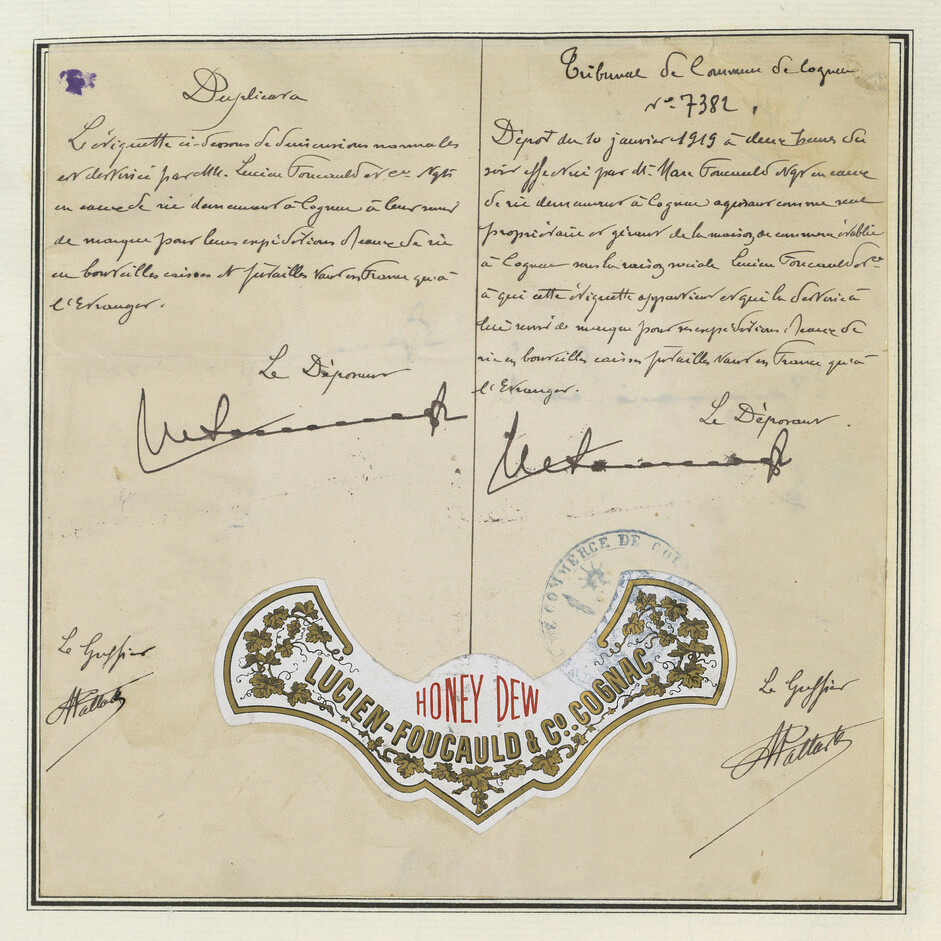 Duplicata
L'étiquette ci-dessous de dimensions normales
est destinée par MM. Lucien Foucauld et Cie Ngts
en eaux de vie demeurant à Cognac à leur servir
de marque pour leurs expéditions d'eaux de vie
en bouteilles caisses et futailles tant en France qu'à
l'Etranger.
Le Déposant
Le Greffier
Tribunal de Commerce de Cognac
No 7382.
Dépot du 10 janvier 1919 à deux heures du
soir effectué par M. Marc Foucauld Ngt en eaux
de vie demeurant à Cognac agissant comme seul
propriétaire et gérant de la maison de commerce établie
à Cognac sous la raison sociale Lucien Foucauld et Cie
à qui cette étiquette appartient et qui la destine à
lui servir de marque pour ses expéditions d'eaux de
vie en bouteilles caisses futailles tant en France qu'à
l'Etranger.
Le Déposant.
COMMERCE DE CO
Le Greffier
HONEY DEW
LUCIEN-FOUCAULD & Co. COGNAC